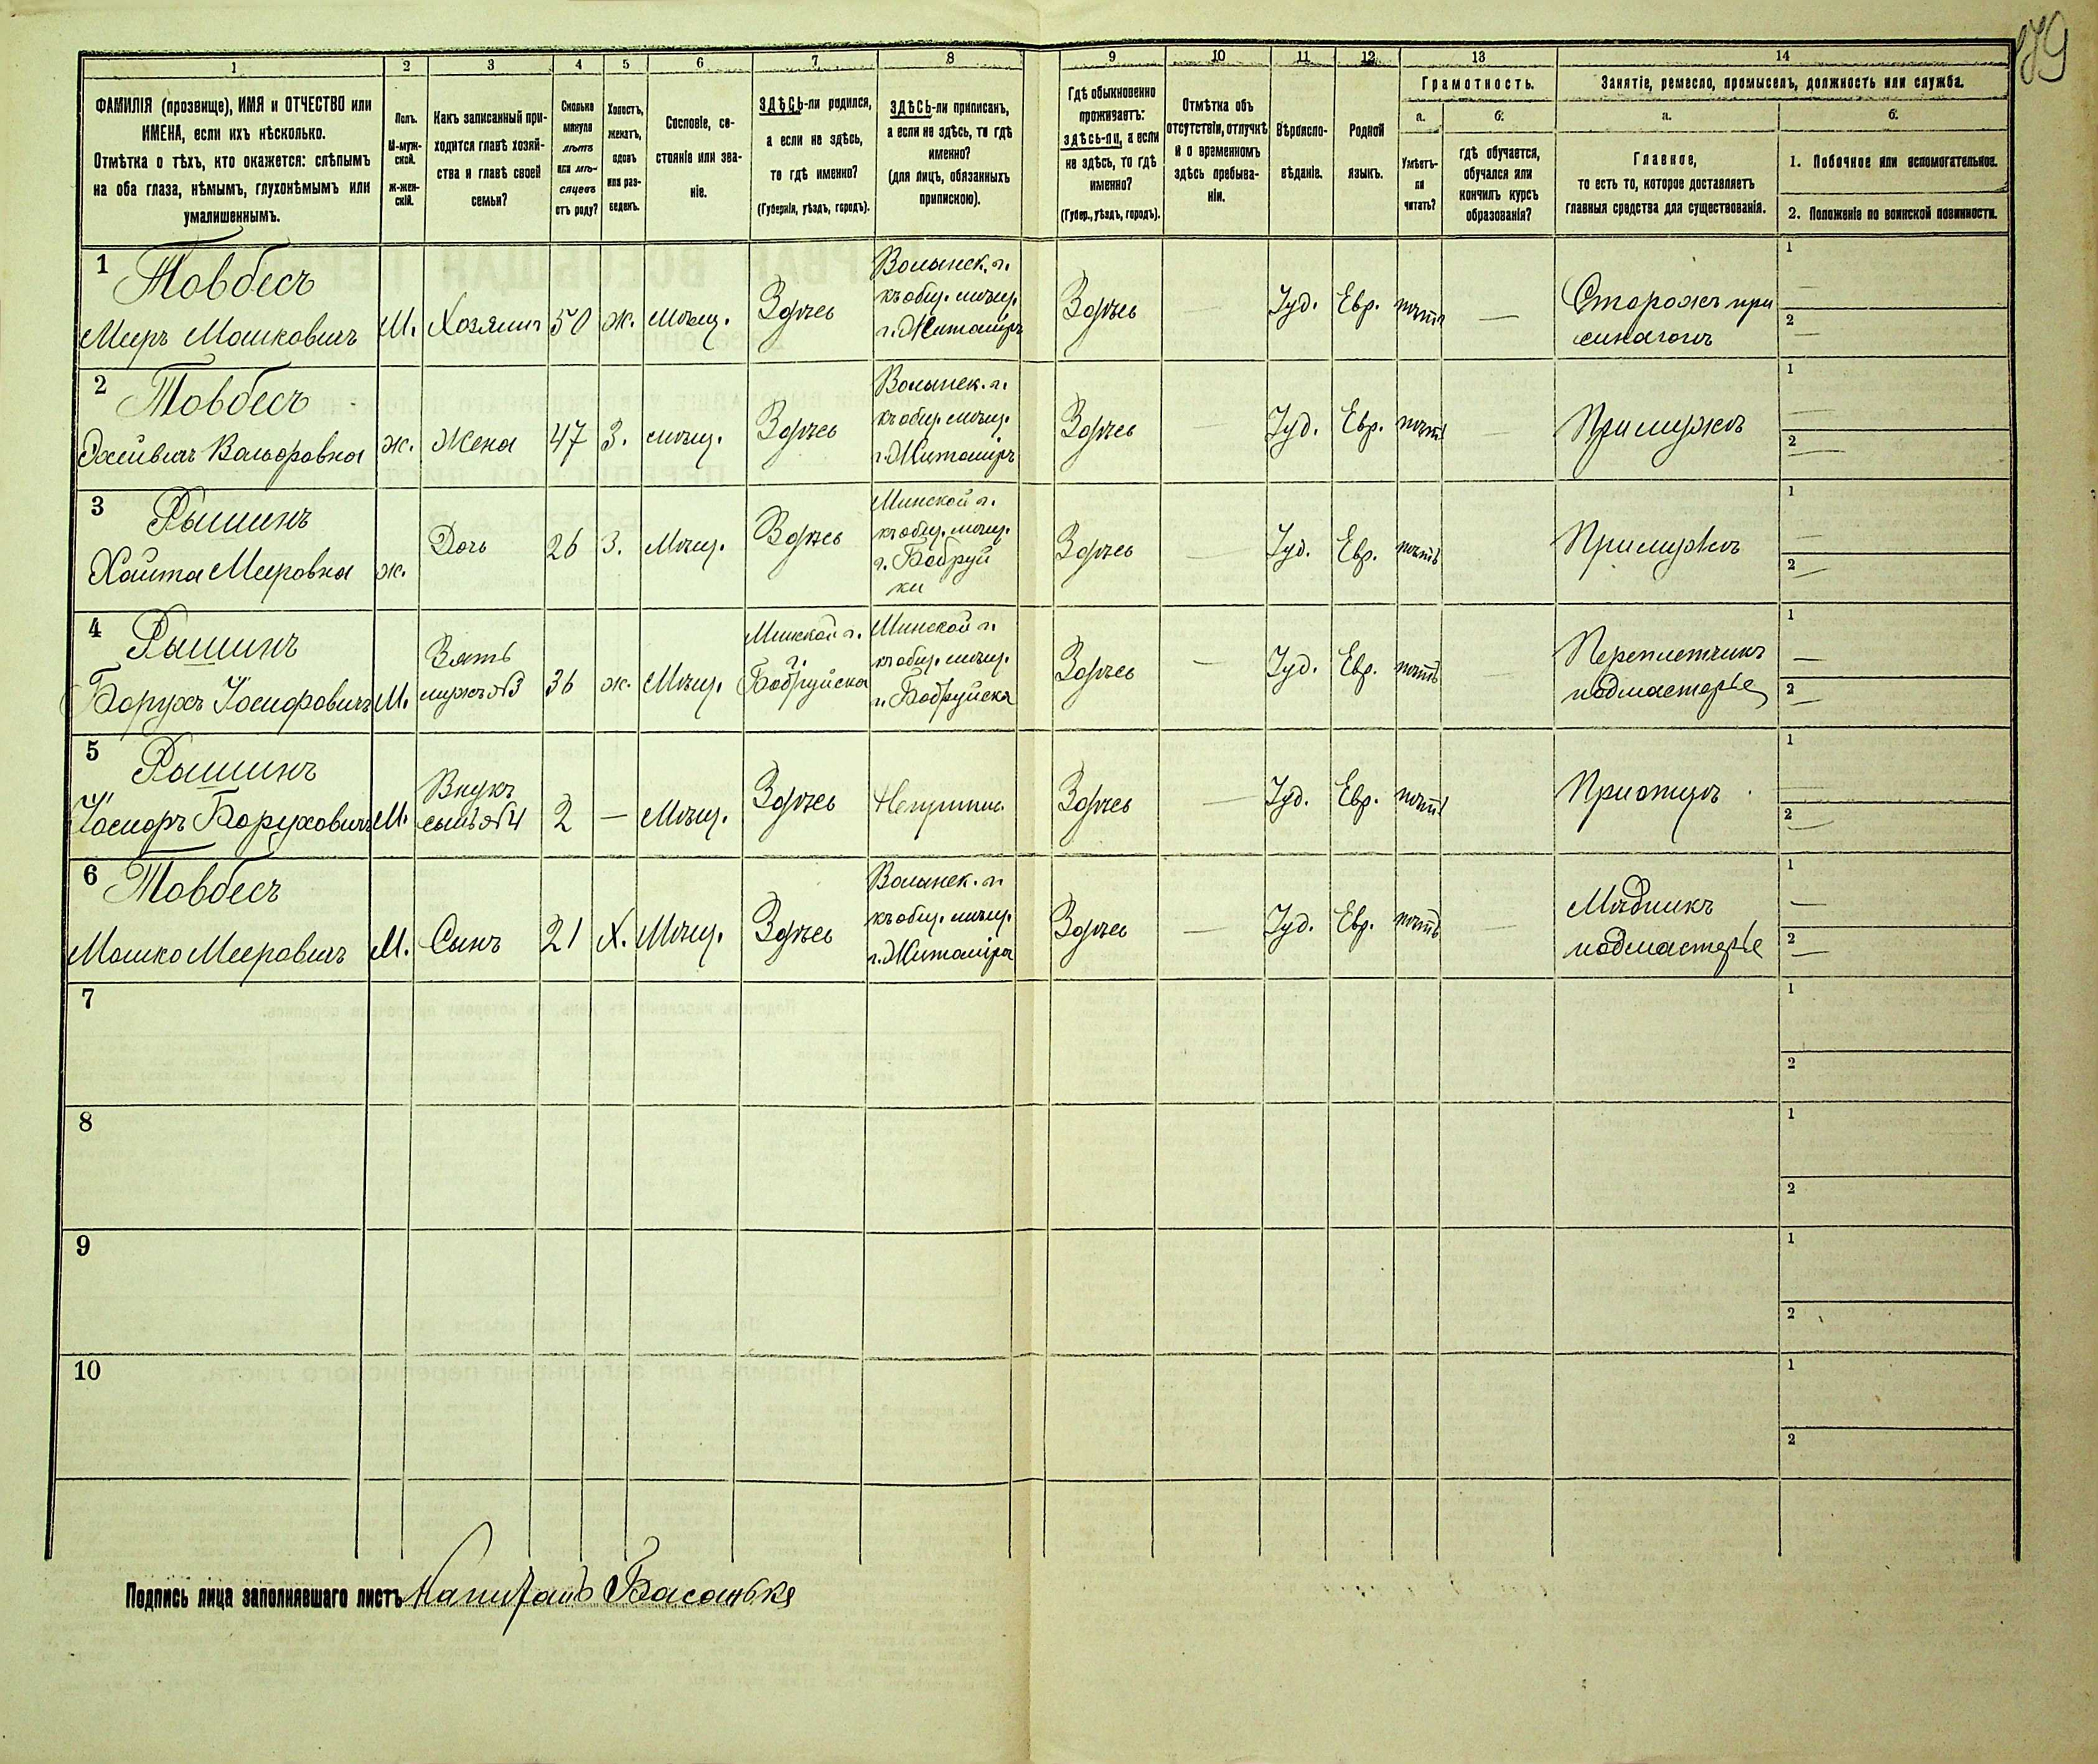 179
1 2 3 4 5 6 7 8 9 10 11 12 13 14
ФАМИЛІЯ (прозвище), ИМЯ и ОТЧЕСТВО или
ИМЕНА, если ихъ нѣсколько.
Отмѣтка о тѣхъ, кто окажется: слѣпымъ
на оба глаза, нѣмымъ, глухонѣмымъ или
умалишеннымъ.
Полъ.
М-муж-
ской.
Ж-жен-
скій.
Какъ записанный при-
ходится главѣ хозяй-
ства и главѣ своей
семьи?
Сколько
минуло
лѣтъ
или мѣ-
сяцевъ
отъ роду?
Холостъ,
женатъ,
вдовъ
или раз-
веденъ.
Сословіе, со-
стояніе или зва-
ніе.
ЗДѢСЬ-ли родился,
а если не здѣсь,
то гдѣ именно?
(Губернія, уѣздъ, городъ).
ЗДѢСЬ-ли приписанъ,
а если не здѣсь, то гдѣ
именно?
(для лицъ, обязанныхъ
припискою).
Гдѣ обыкновенно
проживаетъ:
здѣсь-ли, а если
не здѣсь, то гдѣ
именно?
(Губер., уѣздъ, городъ).
Отмѣтка объ
отсутствіи, отлучкѣ
и о временномъ
здѣсь пребыва-
ніи.
Вѣроиспо-
вѣданіе.
Родной
языкъ.
Грамотность.
а.
Умѣетъ-
ли
читать?
б.
гдѣ обучается,
обучался или
кончилъ курсъ
образованія?
Занятіе, ремесло, промыселъ, должность или служба.
а.
Главное,
то есть то, которое доставляетъ
главныя средства для существованія.
б.
1. Побочное или вспомогательное.
2. Положеніе по воинской повинности.
1 Товбесъ
Меръ Мошковичъ
М.
Хозяинъ
50
ж.
мѣщ.
Здѣсь
Волынск. г.
къ общ. мѣщ.
г. Житоміръ
Здѣсь
—
Іуд.
Евр.
нѣтъ
—
Сторожъ при
синагогѣ
1
—
2
—
2 Товбесъ
Вольфовна
ж.
Жена
47
З.
мѣщ.
Здѣсь
Волынск. г.
къ общ. мѣщ.
г. Житоміръ
Здѣсь
—
Іуд.
Евр.
нѣтъ
—
При мужѣ
1
—
2
—
3 Рышинъ
Мееровна
ж.
Дочь
26
З.
Мѣщ.
Здѣсь
Минской г.
къ общ. мѣщ.
г. Бобруй
ки
Здѣсь
—
Іуд.
Евр.
нѣтъ
—
При мужѣ
1
—
2
—
4 Рышинъ
Борухъ Іосифовичъ
М.
Зять
мужъ №3
36
ж.
Мѣщ.
Минской г.
г.
Бобруйска
Минской г.
къ общ. мѣщ.
г. Бобруйска
Здѣсь
—
Іуд.
Евр.
нѣтъ
—
Переплетчикъ
подмастерье
1
—
2
—
5 Рышинъ
Іосифъ Боруховичъ
М.
Внукъ
сынъ №4
2
—
Мѣщ.
Здѣсь
Здѣсь
—
Іуд.
Евр.
нѣтъ
При отцѣ
1
—
2
—
6 Товбесъ
Мошко Мееровичъ
М.
Сынъ
21
Х.
Мѣщ.
Здѣсь
Волынск. г.
къ общ. мѣщ.
г. Житоміра
Здѣсь
—
Іуд.
Евр.
нѣтъ
—
Мѣдникъ
подмастерье
1
—
2
—
7
1
2
8
1
2
9
1
2
10
1
2
Подпись лица заполнявшаго листъ